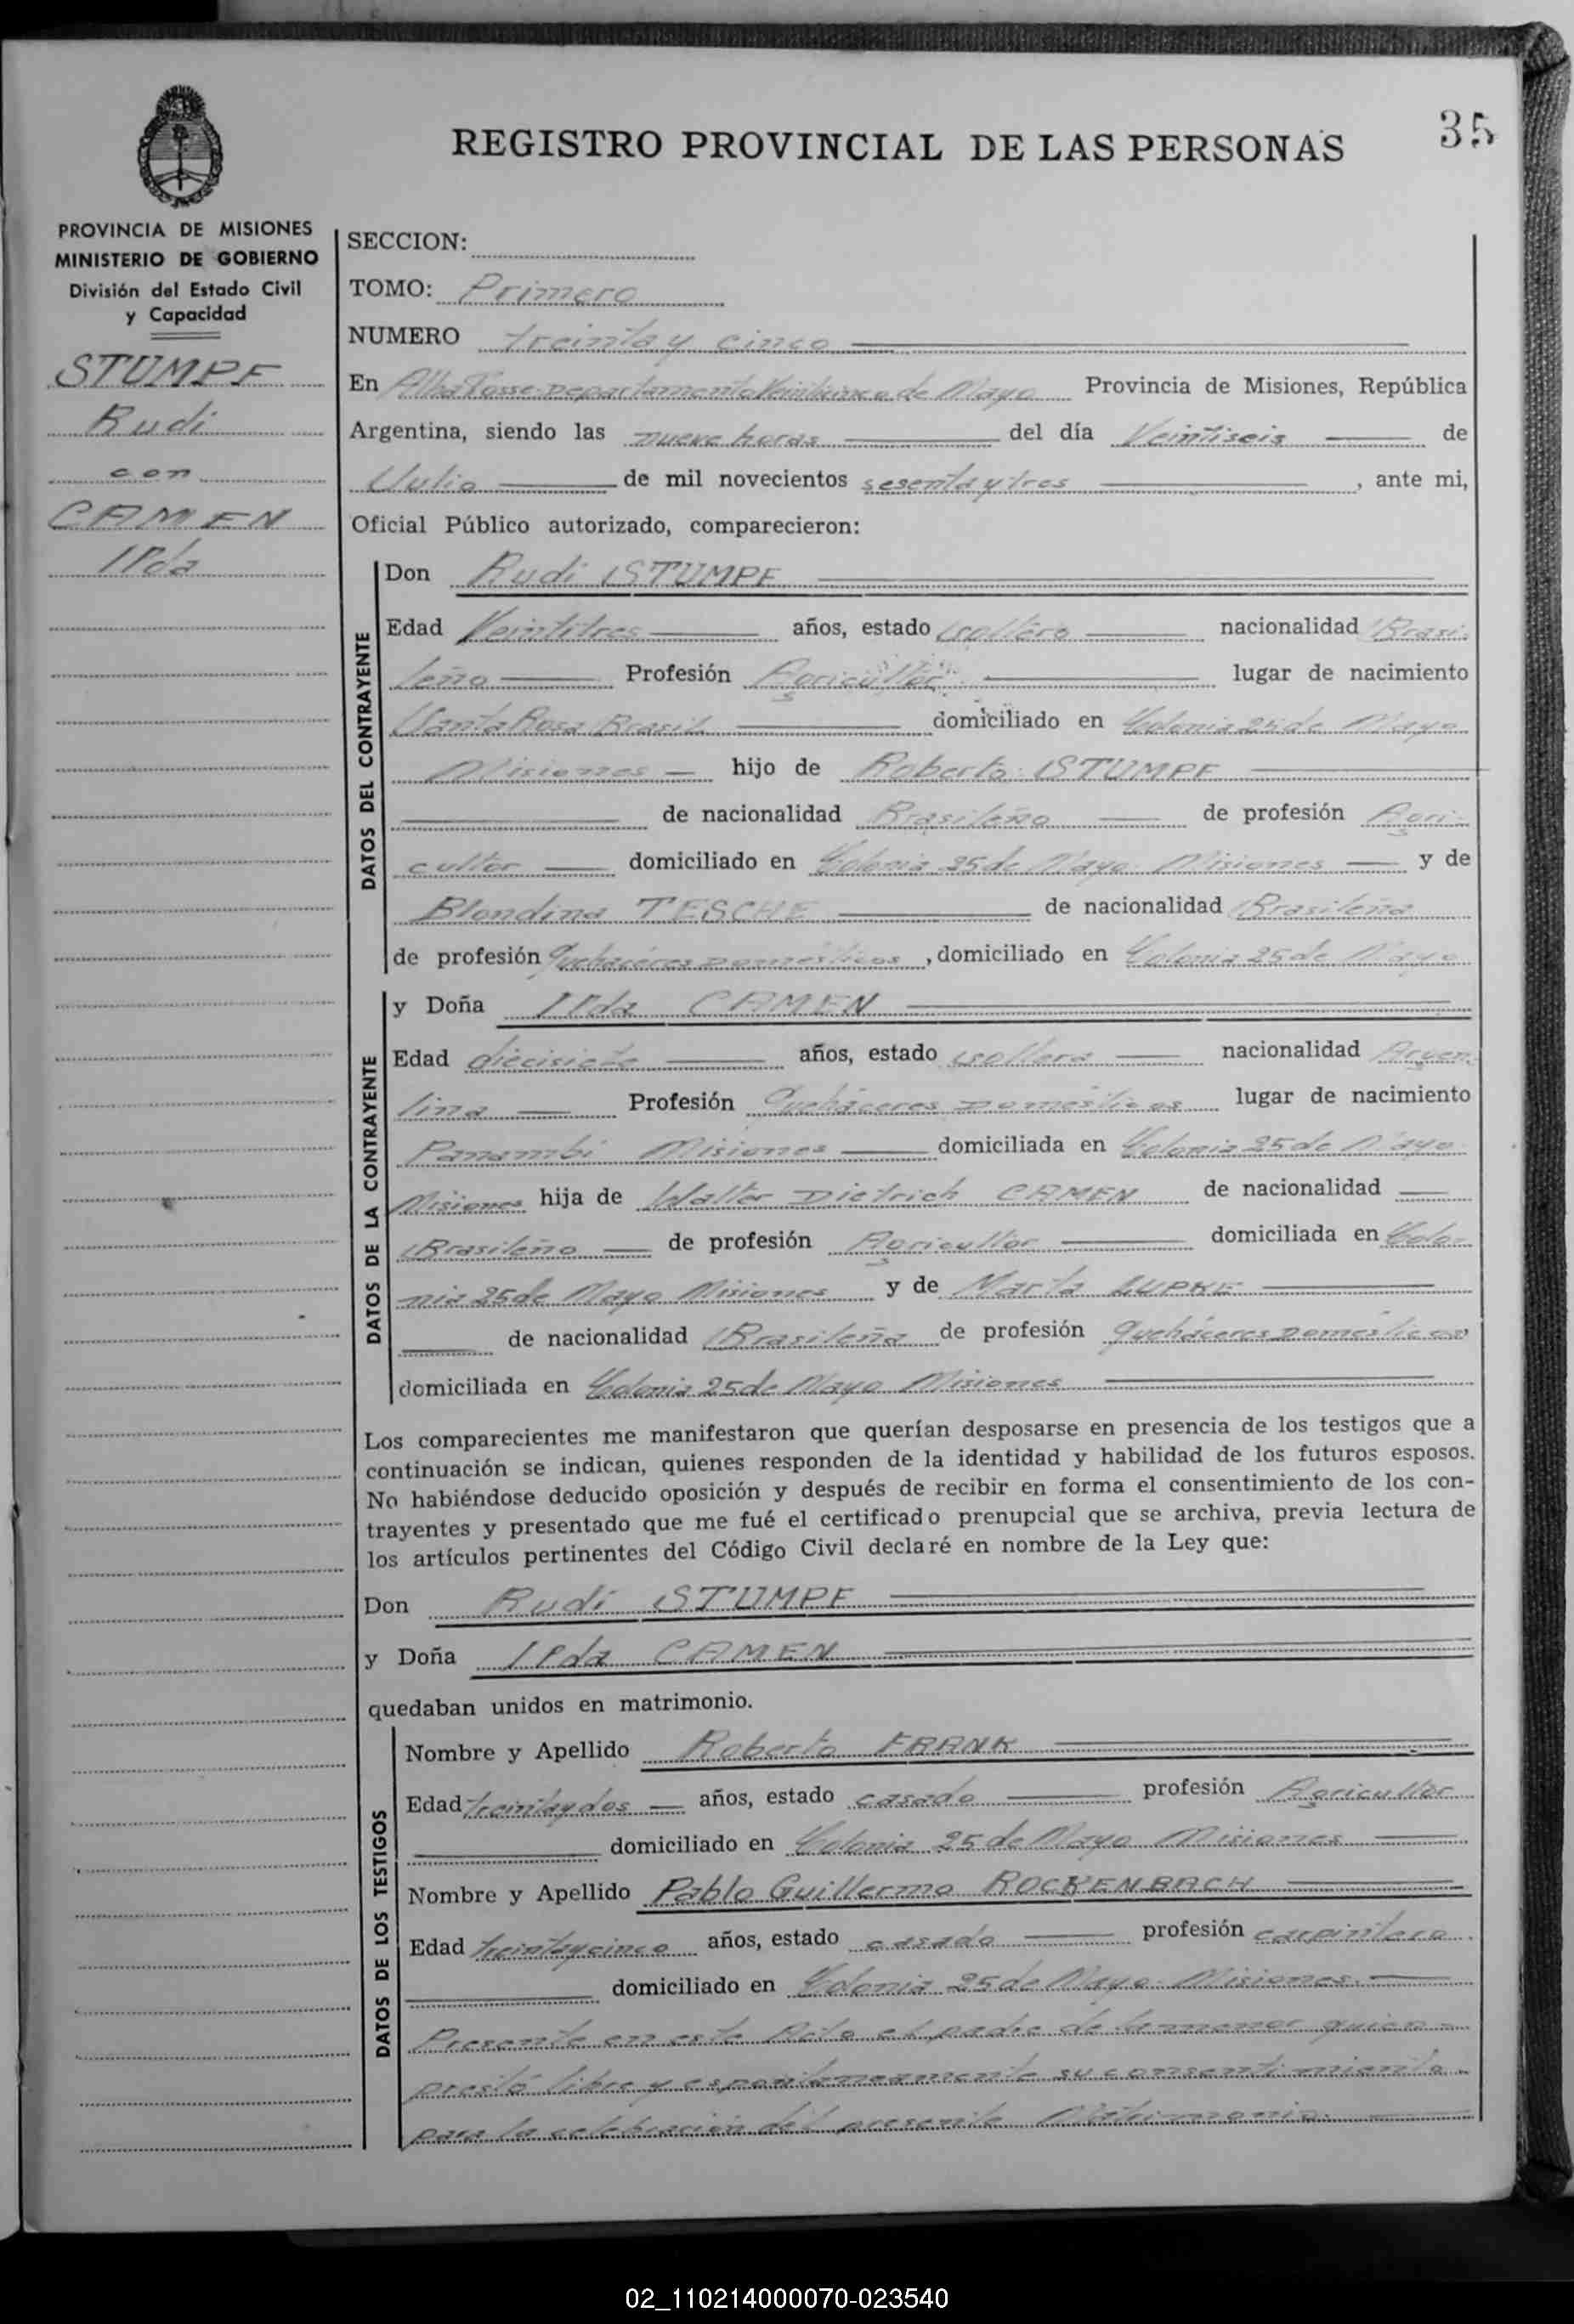 35
REGISTRO PROVINCIAL DE LAS PERSONAS
PROVINCIA DE MISIONES
MINISTERIO DE GOBIERNO
División del Estado Civil
y Capacidad
STUMPF
Rudi
con
CAMEN
Ilda
SECCION:
TOMO: Primero
NUMERO treinta y cinco
En Alba Posse Departamento Veinticinco de Mayo Provincia de Misiones, República
Argentina, siendo las nueve horas del día Veintiseis de
Julio de mil novecientos sesenta y tres, ante mi,
Oficial Público autorizado, comparecieron:
DATOS DEL CONTRAYENTE
Don Rudi STUMPF
Edad Veintitres años, estado soltero nacionalidad Brasi-
leña Profesión Agricultor lugar de nacimiento
Santa Rosa Brasil domiciliado en Colonia 25 de Mayo
Misiones hijo de Roberto STUMPF
de nacionalidad Brasileña de profesión Agri-
cultor domiciliado en Colonia 25 de Mayo Misiones y de
Blondina TESCHE de nacionalidad Brasileña
de profesión Quehaceres Domésticos, domiciliado en Colonia 25 de Mayo
DATOS DE LA CONTRAYENTE
y Doña Ilda CAMEN
Edad diecisiete años, estado soltera nacionalidad Argen-
tina Profesión Quehaceres Domésticos lugar de nacimiento
Panambi Misiones domiciliada en Colonia 25 de Mayo
Misiones hija de Walter Dietrich CAMEN de nacionalidad
Brasileño de profesión Agricultor domiciliada en Colo-
nia 25 de Mayo Misiones y de Marta LUPKE
de nacionalidad Brasileña de profesión Quehaceres Domesticos
domiciliada en Colonia 25 de Mayo Misiones
Los comparecientes me manifestaron que querían desposarse en presencia de los testigos que a
continuación se indican, quienes responden de la identidad y habilidad de los futuros esposos.
No habiéndose deducido oposición y después de recibir en forma el consentimiento de los con-
trayentes y presentado que me fué el certificado prenupcial que se archiva, previa lectura de
los artículos pertinentes del Código Civil declaré en nombre de la Ley que:
Don Rudi STUMPF
y Doña Ilda CAMEN
quedaban unidos en matrimonio.
DATOS DE LOS TESTIGOS
Nombre y Apellido Roberto FRANK
Edad treinta y dos años, estado casado profesión Agricultor
domiciliado en Colonia 25 de Mayo Misiones
Nombre y Apellido Pablo Guillermo ROCKENBACH
Edad treinta y cinco años, estado casado profesión carpintero
domiciliado en Colonia 25 de Mayo Misiones
Presente en este Acto el padre de la menor quien
prestó libre y espontaneamente su consentimiento
para la celebración del presente Matrimonio
02_110214000070-023540